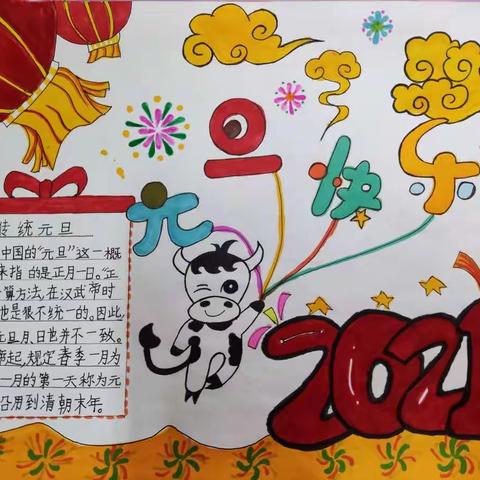 元旦快乐
传统元旦
中国的“元旦”这一概
来指的是正月一日。“正
算方法,在汉武帝时
也是很不统一的。因此,
元旦月、日也并不一致。
起,规定春季一月为
一月的第一天称为元
沿用到清朝末年。
2021